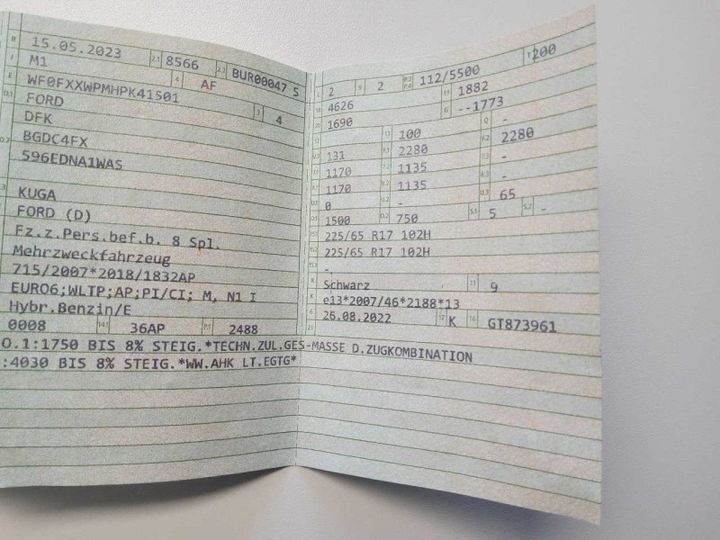 15.05.2023 8566 BUR00047 5
M1 AF
WF0FXXWPMHPK41501 4
FORD
DFK
BGDC4FX
596EDNA1WAS
KUGA
FORD (D)
Fz.z.Pers.bef.b. 8 Spl.
Mehrzweckfahrzeug
715/2007*2018/1832AP
EURO6;WLTP;AP;PI/CI; M, N1 I
Hybr.Benzin/E
0008 36AP 2488
O.1:1750 BIS 8% STEIG.*TECHN.ZUL.GES-MASSE D.ZUGKOMBINATION
:4030 BIS 8% STEIG.*WW.AHK LT.EGTG*
2 2 112/5500 200
4626 1882
1690 --1773
100 -
131 2280 2280
1170 1135 -
1170 1135 -
0 - 65
1500 750 5 -
225/65 R17 102H
225/65 R17 102H
-
Schwarz 9
e13*2007/46*2188*13
26.08.2022 K GT873961